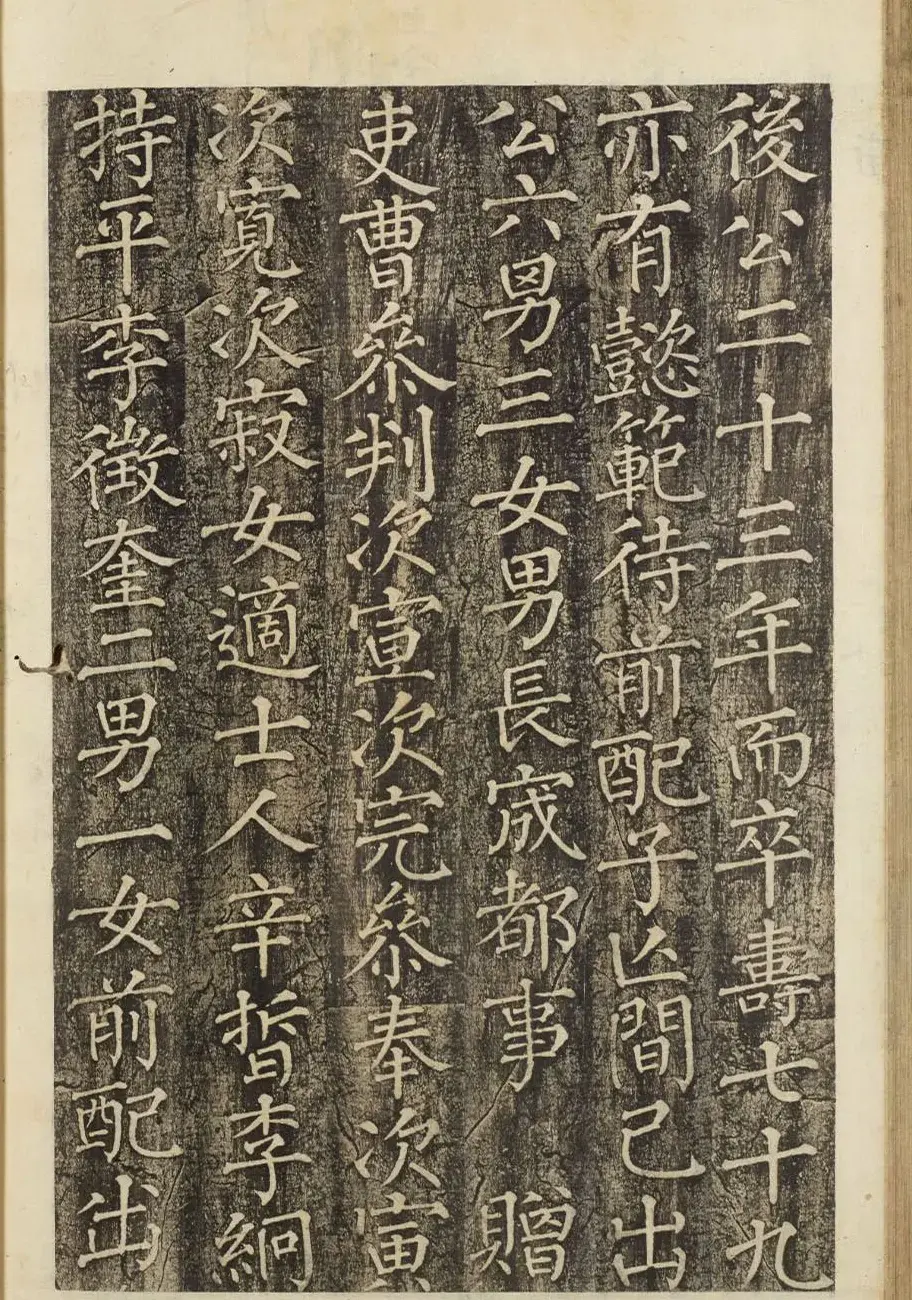 後公二十三年而卒壽七十九
亦有懿範待前配子亡間己出
公六男三女男長宬都事 贈
吏曹叅判次宣次完叅奉次寅
次寬次寂女適士人辛晳李絅
持平李徵奎二男一女前配出